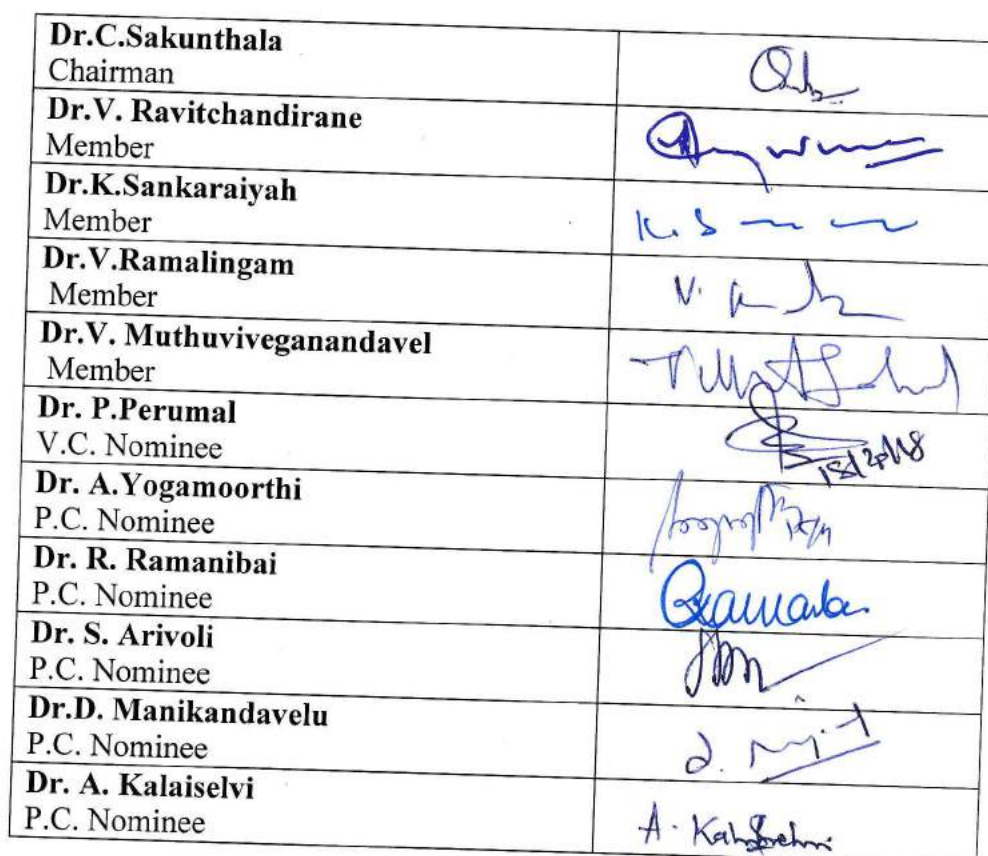 Dr.C.Sakunthala
Chairman
Dr.V. Ravitchandirane
Member
Dr.K.Sankaraiyah
Member
K. S
Dr.V.Ramalingam
Member
V.
Dr.V. Muthuviveganandavel
Member
Dr. P.Perumal
V.C. Nominee
Dr. A.Yogamoorthi
P.C. Nominee
Dr. R. Ramanibai
P.C. Nominee
Dr. S. Arivoli
P.C. Nominee
Dr.D. Manikandavelu
P.C. Nominee
Dr. A. Kalaiselvi
P.C. Nominee
A.